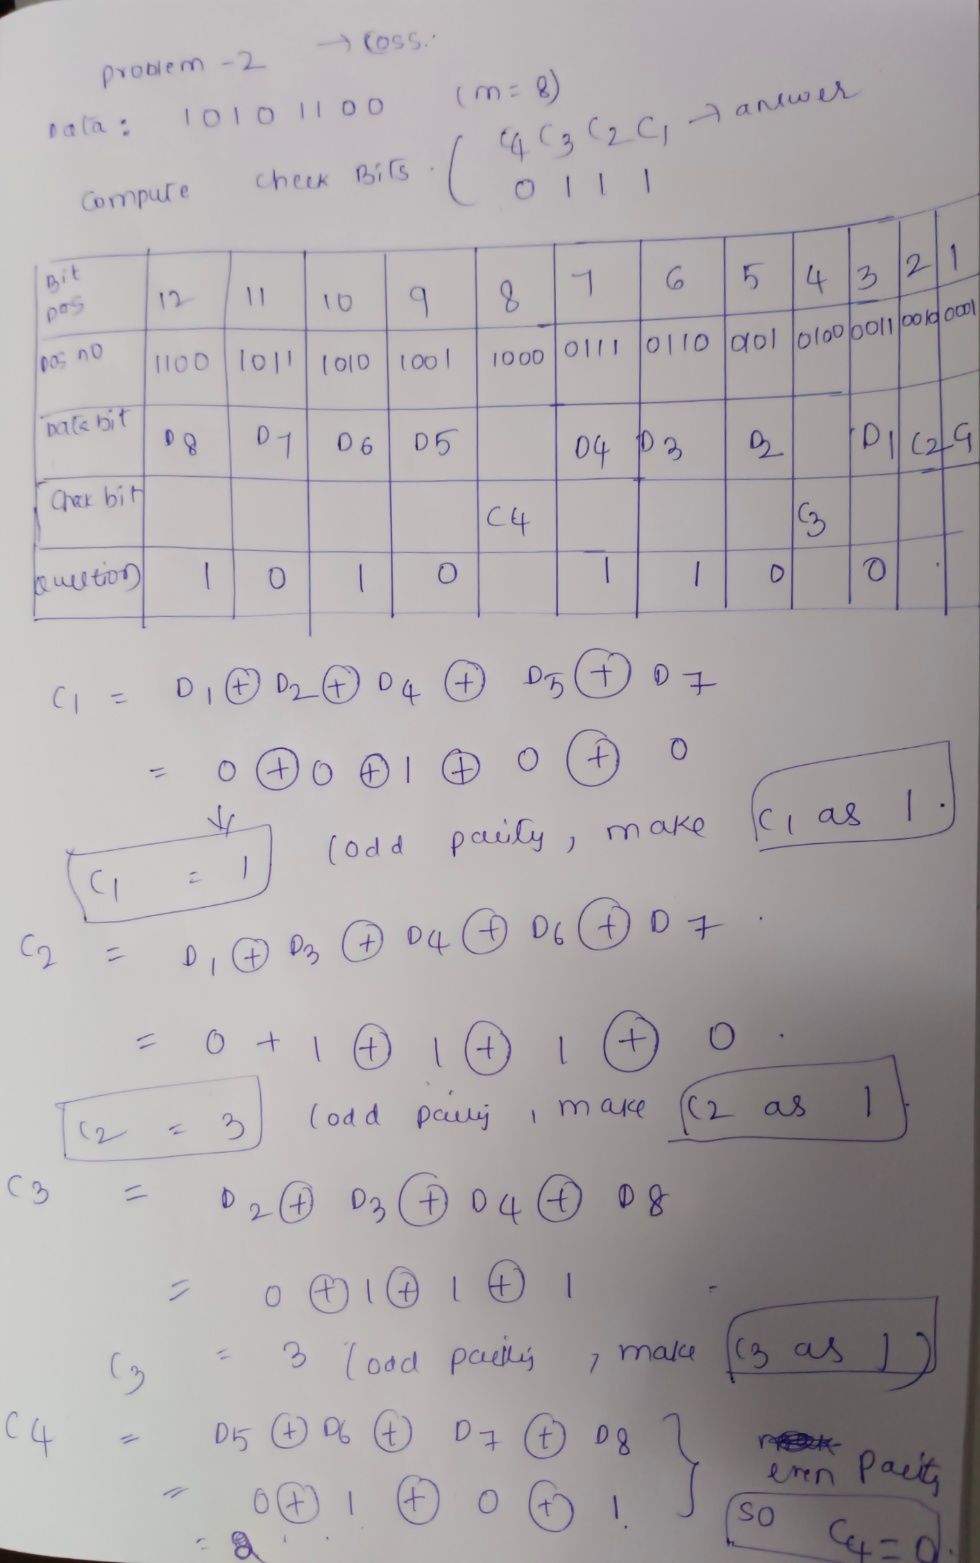 problem - 2 → Coss.
Data : 1 0 1 0 1 1 0 0 (m = 8)
Compute Check Bits. ( C4 C3 C2 C1 → answer
0 1 1 1
Bit pos 12 11 10 9 8 7 6 5 4 3 2 1
pos no 1100 1011 1010 1001 1000 0111 0110 0101 0100 0011 0010 0001
Data bit D8 D7 D6 D5 D4 D3 D2 D1 C2 C1
Check bit C4 C3
question 1 0 1 0 1 1 0 0
C1 = D1 ⊕ D2 ⊕ D4 ⊕ D5 ⊕ D7
= 0 ⊕ 0 ⊕ 1 ⊕ 0 ⊕ 0
C1 = 1 (odd parity, make C1 as 1.
C2 = D1 ⊕ D3 ⊕ D4 ⊕ D6 ⊕ D7
= 0 + 1 ⊕ 1 ⊕ 1 ⊕ 0
C2 = 3 (odd parity, make C2 as 1
C3 = D2 ⊕ D3 ⊕ D4 ⊕ D8
= 0 ⊕ 1 ⊕ 1 ⊕ 1
C3 = 3 (odd parity, make C3 as 1)
C4 = D5 ⊕ D6 ⊕ D7 ⊕ D8 } even parity
= 0 ⊕ 1 ⊕ 0 ⊕ 1. so C4 = 0.
= 2